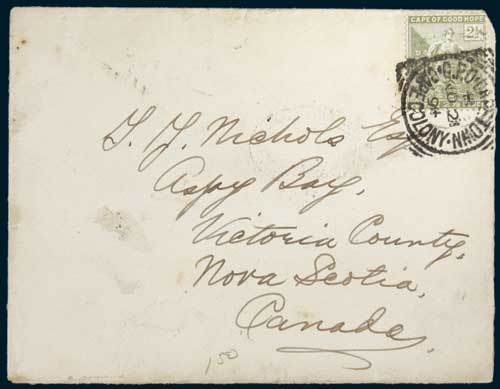 CAPE OF GOOD HOPE
2½
G.P.O. CAPE TOWN · CAPE COLONY
T. J. Nichols Esq
Aspy Bay,
Victoria County,
Nova Scotia,
Canada,
150